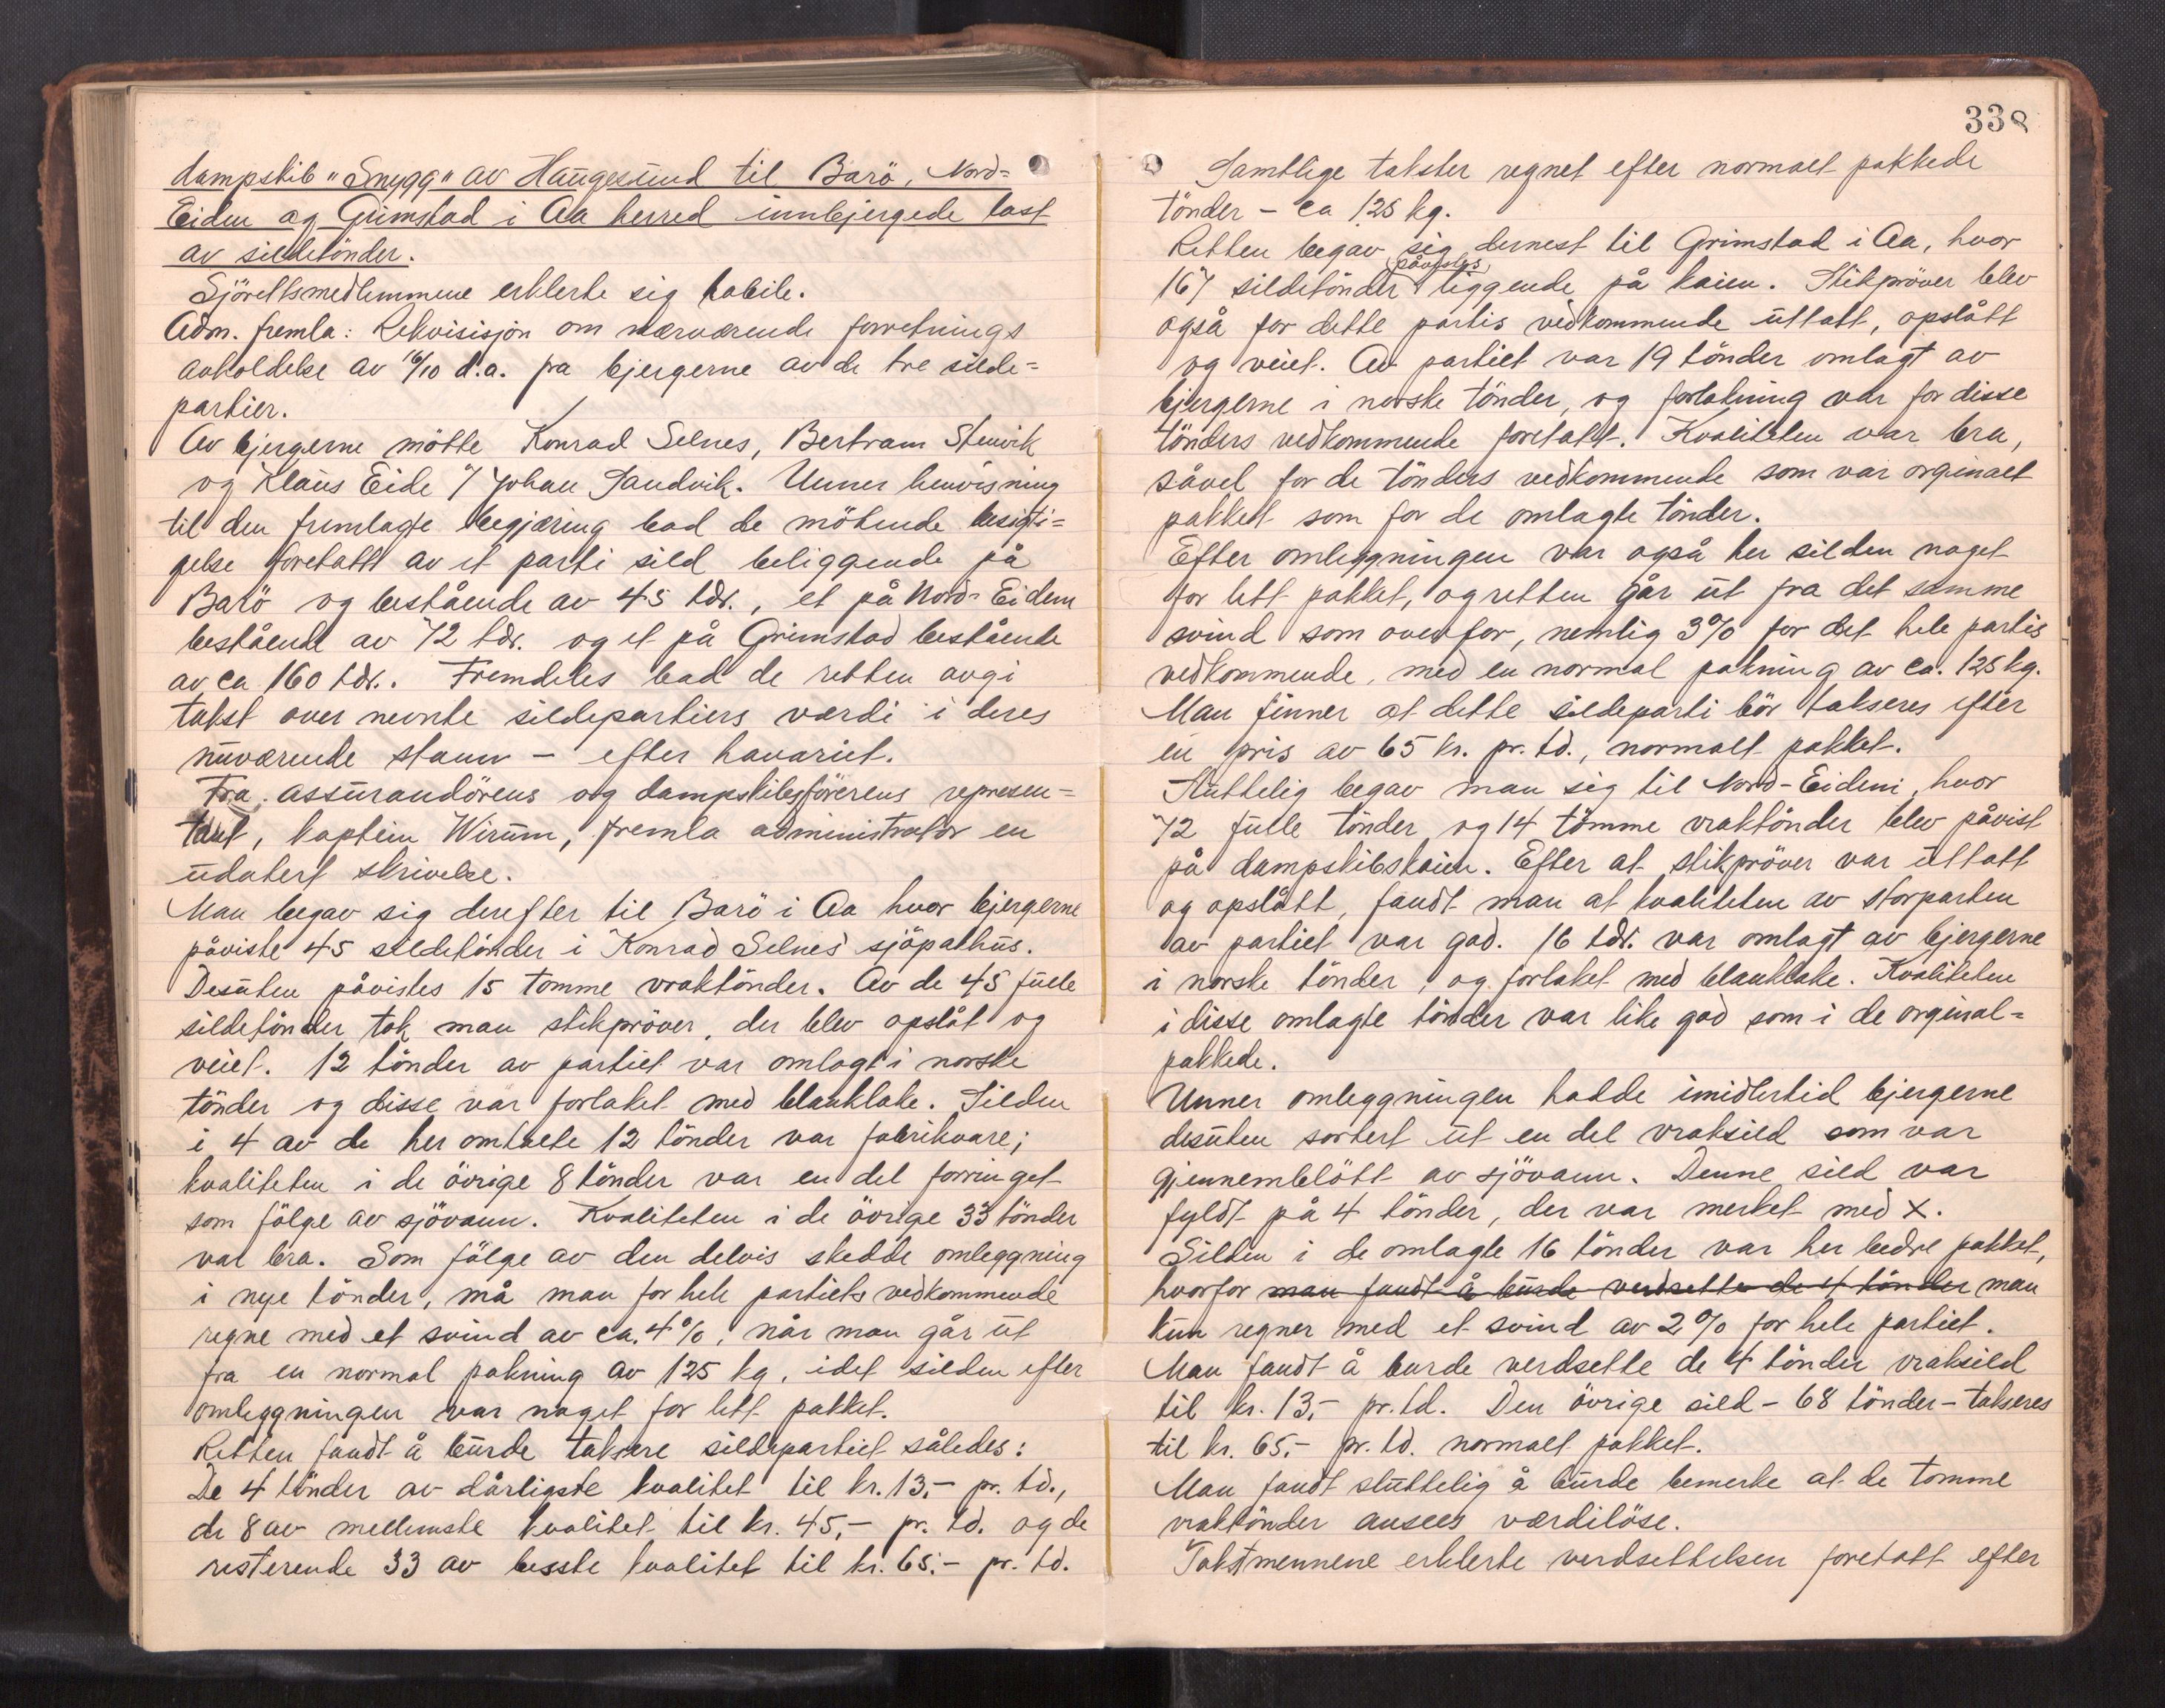 dampskib "Snegg" av Haugesund til Barö, Nord-
Eiden og Grimstad i Aa herred innbjergede last
av sildetönder.
Sjörettsmedlemmene erklerte sig habile.
Adm. fremla: Rekvisisjon om nærværende forretnings
avholdelse av 16/10 d.a. fra bjergerne av de tre silde-
partier.
Av bjergerne mötte Konrad Selnes, Bertram Stenvik
og Klaus Eide f/ Johan Sandvik. Unner henvisning
til den fremlagte begjæring bad de mötende besigti-
gelse foretatt av et parti sild beliggende på
Barö og bestående av 45 tdr., et på Nord-Eiden
bestående av 72 tdr. og et på Grimstad bestående
av ca 160 tdr. Fremdeles bad de retten avgi
takst over nevnte sildepartiers værdi i deres
nuværende stann - efter havariet.
Fra assurandörens og dampskibsförerens represen-
tant, kaptein Wirum, fremla administrator en
udatert skrivelse.
Man begav sig derefter til Barö i Aa hvor bjergerne
påviste 45 sildetönder i Konrad Selnes' sjöpakhus.
Desuten påvistes 15 tomme vraktönder. Av de 45 fulle
sildetönder tok man stikpröver, der blev opslåt og
veiet. 12 tönder av partiet var omlagt i norske
tönder og disse var forlaket med blanklake. Silden
i 4 av de her omtalte 12 tönder var fabrikvare;
kvaliteten i de övrige 8 tönder var en del forringet
som fölge av sjövann. Kvaliteten i de övrige 33 tönder
var bra. Som fölge av den delvis skedde omleggning
i nye tönder, må man for hele partiets vedkommende
regne med et svind av ca. 4%, når man går ut
fra en normal pakning av 125 kg, idet silden efter
omleggningen var noget for lett pakket.
Retten fandt å burde taksere sildepartiet således:
De 4 tönder av dårligste kvalitet til kr. 13,- pr. td.,
de 8 av mellemste kvalitet til kr. 45,- pr. td. og de
resterende 33 av besste kvalitet til kr. 65,- pr. td.
338
Samtlige takster regnet efter normalt pakkede
tönder - ca 125 kg.
Retten begav sig dernest til Grimstad i Aa, hvor
påvistes
167 sildetönder liggende på kaien. Stikpröver blev
også for dette partis vedkommende uttatt, opslått
og veiet. Av partiet var 19 tönder omlagt av
bjergerne i norske tönder, og forlakning var for disse
tönders vedkommende foretatt. Kvaliteten var bra,
såvel for de tönders vedkommende som var orginalt
pakket som for de omlagte tönder.
Efter omleggningen var også her silden noget
for lett pakket, og retten går ut fra det samme
svind som ovenfor, nemlig 3% for det hele partis
vedkommende, med en normal pakning av ca. 125 kg.
Man finner at dette sildeparti bör takseres efter
en pris av 65 kr. pr. td., normalt pakket.
Sluttelig begav man sig til Nord-Eiden, hvor
72 fulle tönder og 14 tomme vraktönder blev påvist
på dampskibskaien. Efter at stikpröver var uttatt
og opslått, fandt man at kvaliteten av storparten
av partiet var god. 16 tdr. var omlagt av bjergerne
i norske tönder, og forlaket med blanklake. Kvaliteten
i disse omlagte tönder var like god som i de orginal-
pakkede.
Unner omleggningen hadde imidlertid bjergerne
desuten sortert ut en del vraksild som var
gjennemblött av sjövann. Denne sild var
fyldt på 4 tönder, der var merket med X.
Silden i de omlagte 16 tönder var her bedre pakket,
hvorfor man fandt å burde verdsette de 4 tönder man
kun regner med et svind av 2% for hele partiet.
Man fandt å burde verdsette de 4 tönder vraksild
til kr. 13,- pr. td. Den övrige sild - 68 tönder - takseres
til kr. 65,- pr. td. normalt pakket.
Man fandt sluttelig å burde bemerke at de tomme
vraktönder ansees værdilöse.
Takstmennene erklerte verdsettelsen foretatt efter